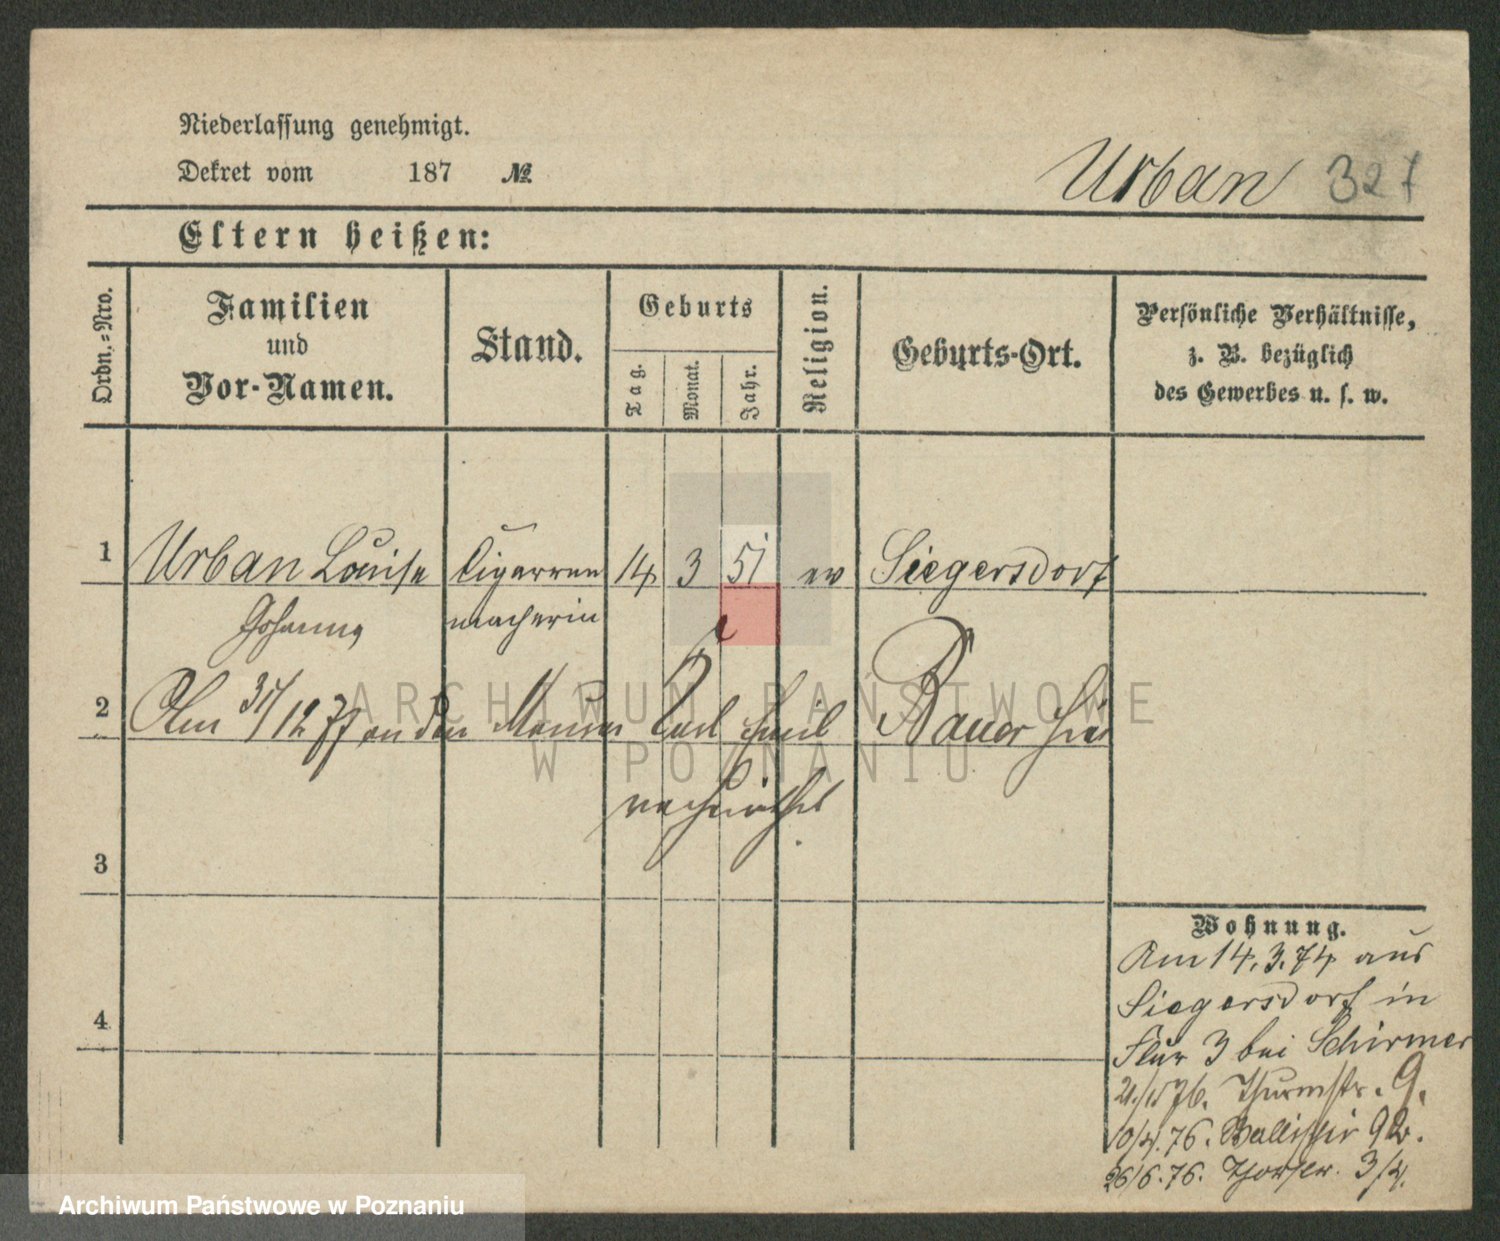 Niederlassung genehmigt.
Dekret vom 187 №
Urban 327
Eltern heißen:
Ordn.-Nro.
Familien
und
Vor-Namen.
Stand.
Geburts
Tag.
Monat.
Jahr.
Religion.
Geburts-Ort.
Persönliche Verhältnisse,
z. B. bezüglich
des Gewerbes u. s. w.
1 Urban Louise Cigarren 14 3 51 ev Siegersdorf
Johanna macherin
2 Am 31/12 77 an den Maurer Carl Emil Bauer hier
verheirathet.
3
4
Wohnung.
Am 14.3.74 aus
Siegersdorf in
Flur 3 bei Schirmer
76. Thurmstr. 9.
10/4.76. 92.
26/6.76. 3/4.
ARCHIWUM PAŃSTWOWE
W POZNANIU
Archiwum Państwowe w Poznaniu